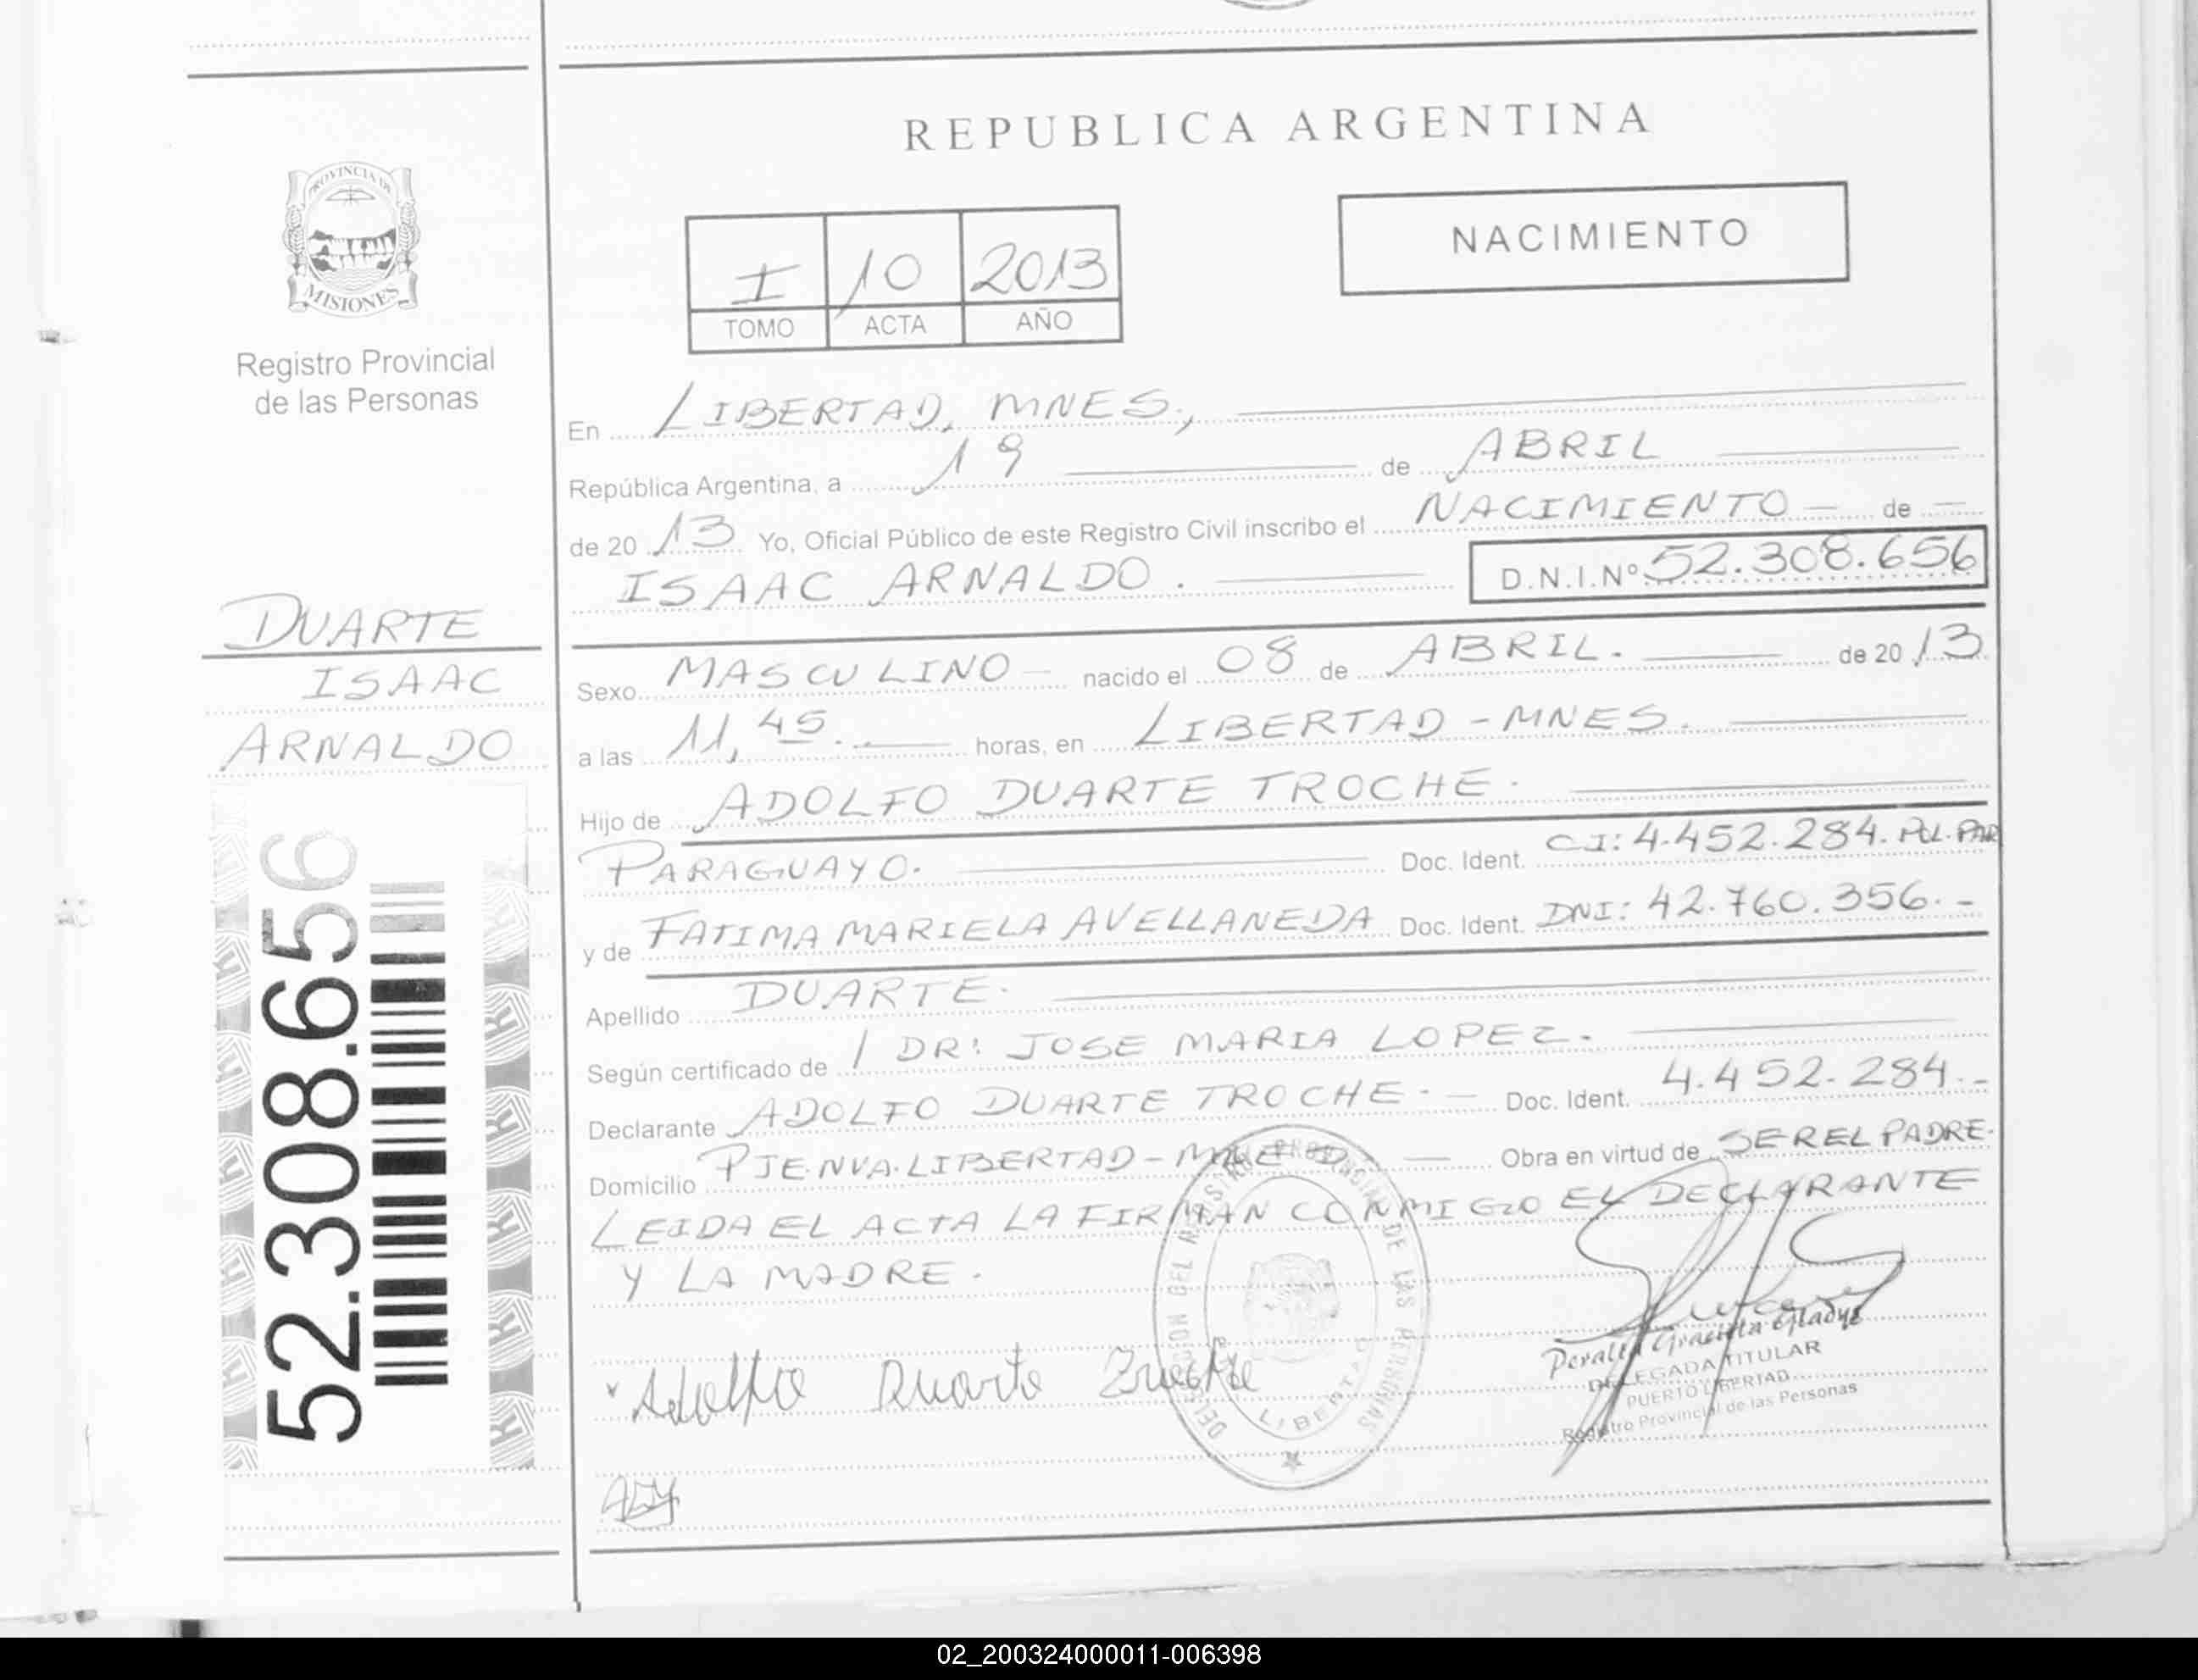 REPUBLICA ARGENTINA
PROVINCIA DE
MISIONES
Registro Provincial
de las Personas
NACIMIENTO
I 10 2013
TOMO ACTA AÑO
En LIBERTAD, MNES.,
República Argentina, a 19 de ABRIL
de 20 13 Yo, Oficial Público de este Registro Civil inscribo el NACIMIENTO de
ISAAC ARNALDO. D.N.I.Nº 52.308.656
DUARTE
ISAAC
ARNALDO
52.308.656
Sexo MASCULINO nacido el 08 de ABRIL. de 20 13
a las 11,45. horas, en LIBERTAD - MNES.
Hijo de ADOLFO DUARTE TROCHE.
PARAGUAYO. Doc. Ident. CI: 4.452.284. POL. PAR
y de FATIMA MARIELA AVELLANEDA Doc. Ident. DNI: 42.760.356.-
Apellido DUARTE.
Según certificado de / DR: JOSE MARIA LOPEZ.
Declarante ADOLFO DUARTE TROCHE.- Doc. Ident. 4.452.284.-
Domicilio PJE. NVA. LIBERTAD - Obra en virtud de SER EL PADRE.
LEIDA EL ACTA LA FIRMAN CONMIGO EL DECLARANTE
Y LA MADRE.
Adolfo Duarte
LIBERTAD
Peralta Graciela Gladys
DELEGADA TITULAR
PUERTO LIBERTAD
Registro Provincial de las Personas
02_200324000011-006398